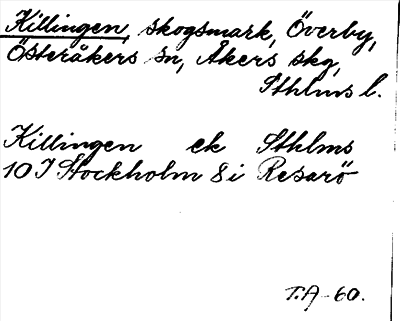 Killingen, skogsmark, Överby,
Österåkers sn, Åkers skg,
Sthlms l.
Killingen ek Sthlms
10 I Stockholm 8 i Resarö
T.A-60.